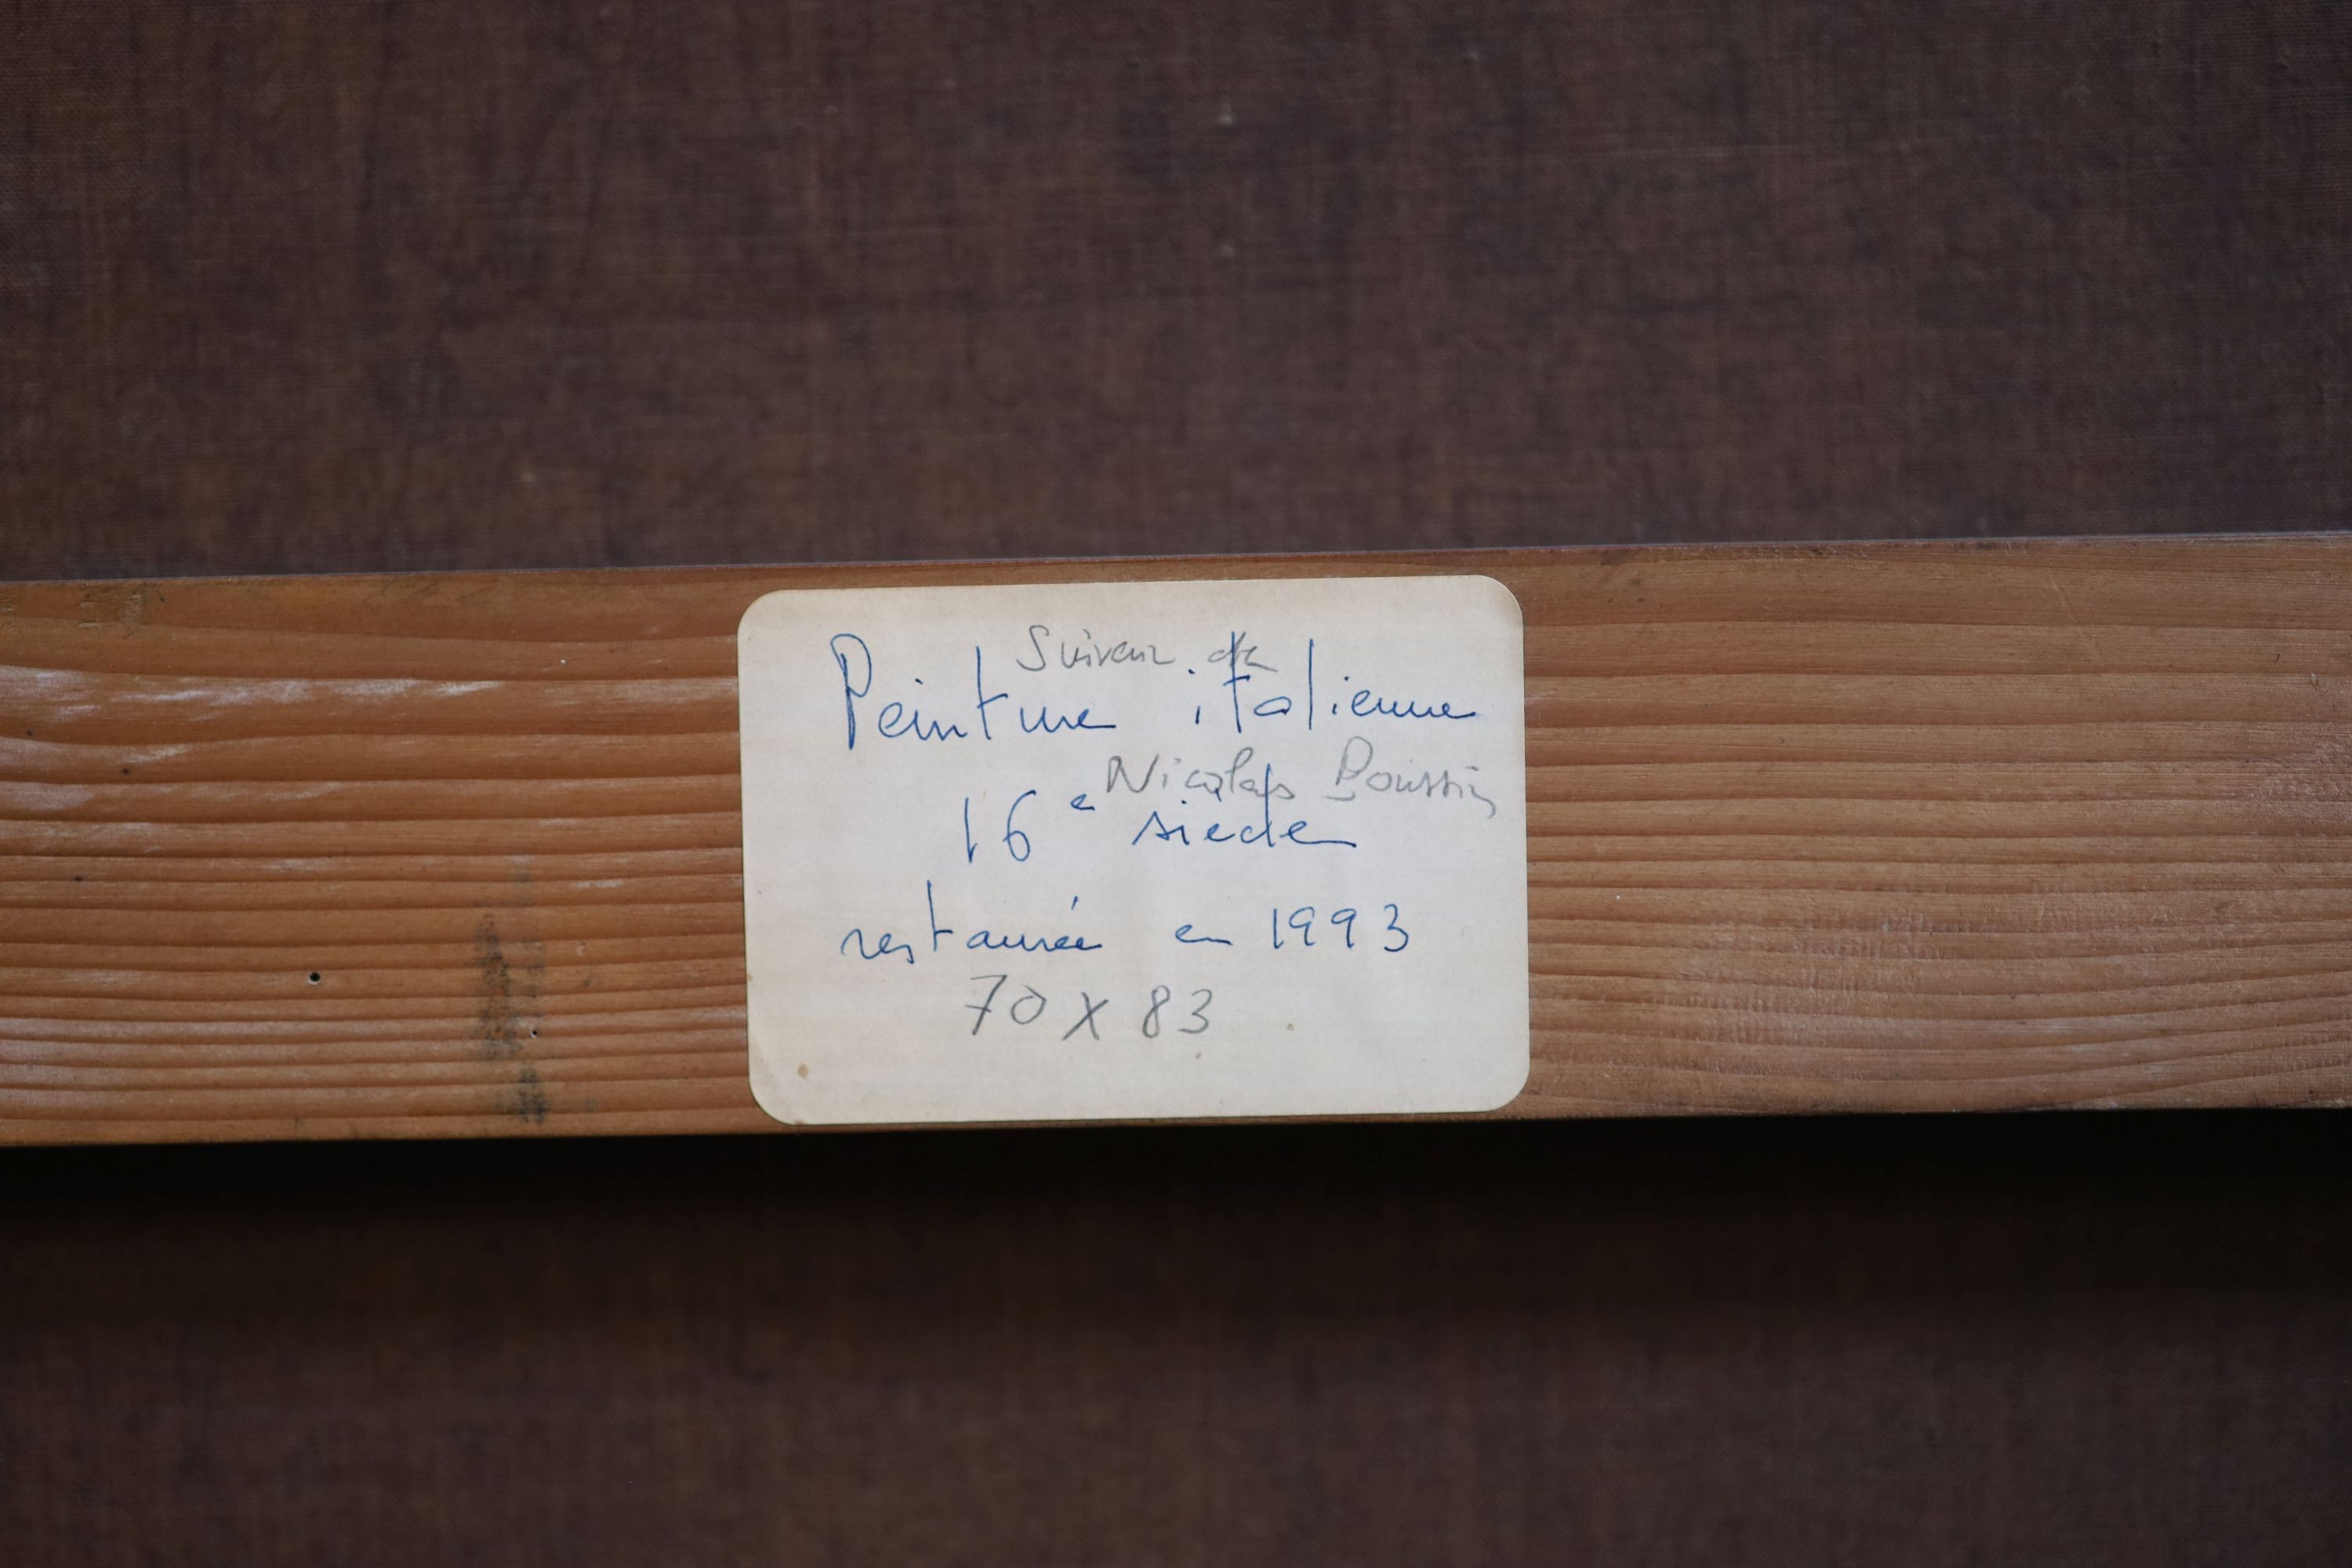 Suiveur de
Peinture italienne
Nicolas Poussin
16e siècle
restaurée en 1993
70 x 83